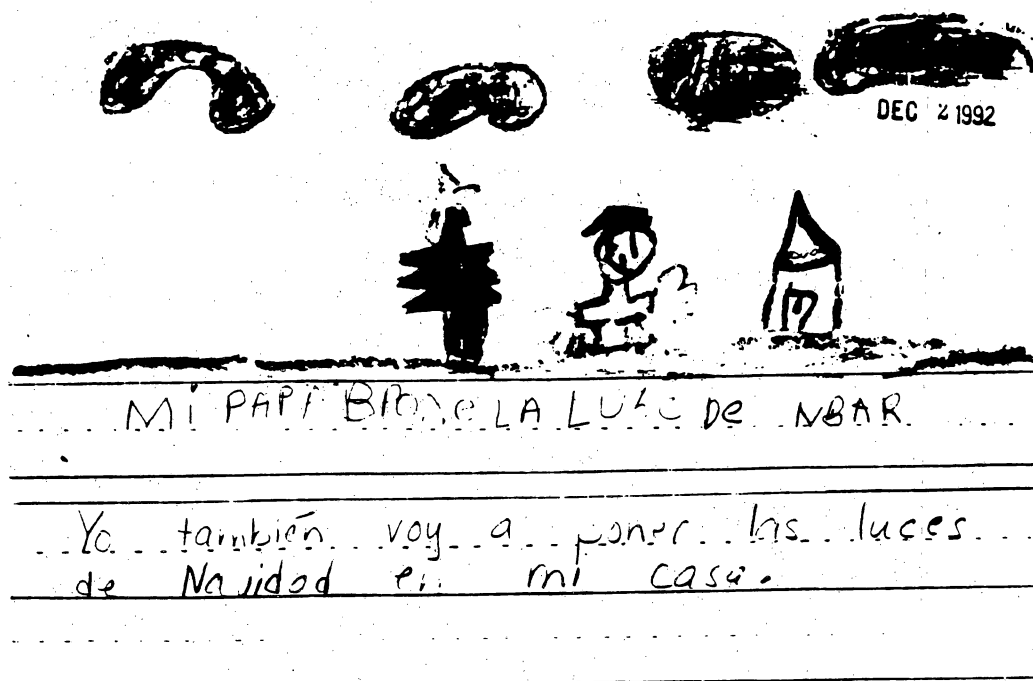 DEC 2 1992
Mi PAPA LA DE NBAR
Yo también voy a poner las luces
de Navidad en mi casa.